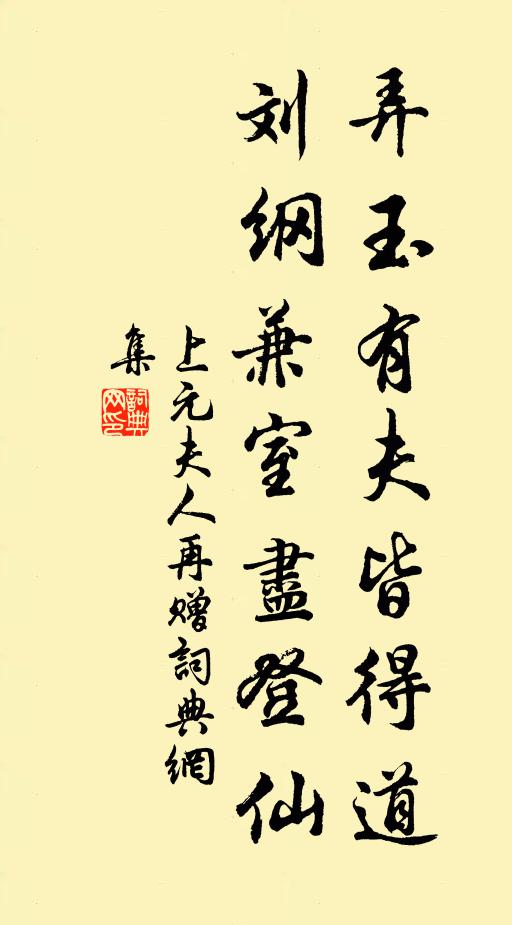 弄玉有夫皆得道
刘纲兼室盡登仙
上元夫人再赠詞典網
集
詞典网印